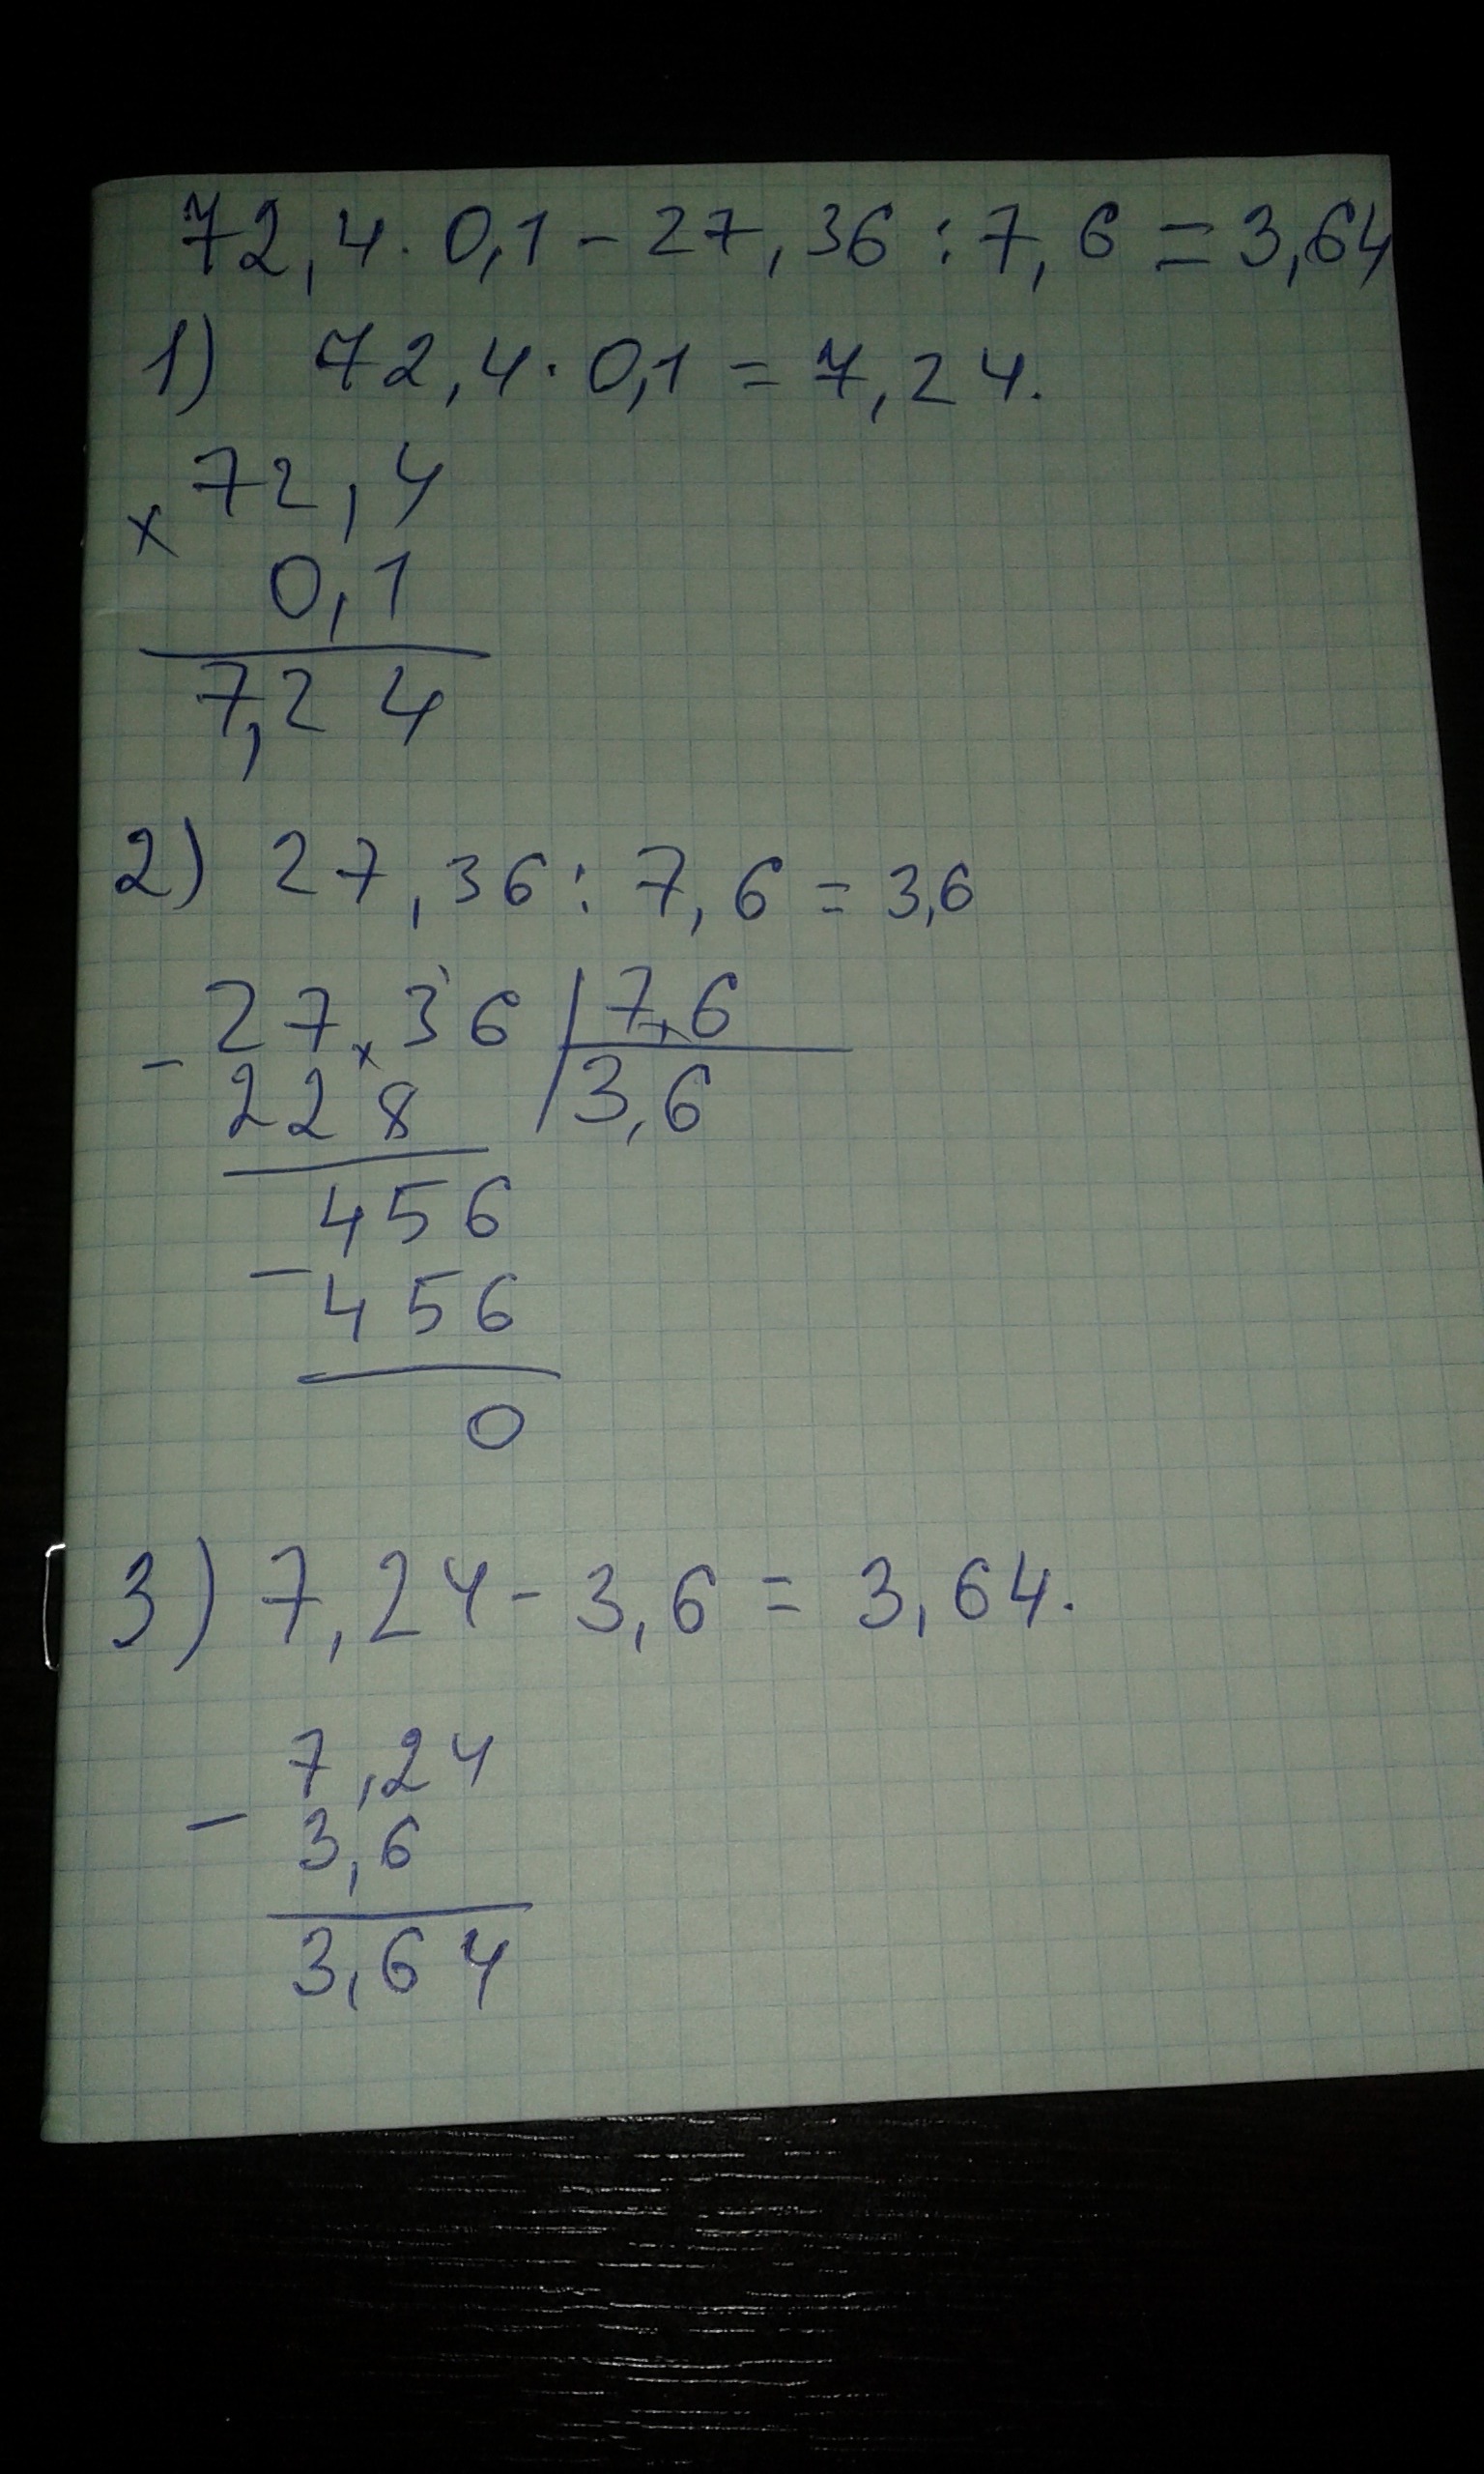 72,4 · 0,1 - 27,36 : 7,6 = 3,64
1) 72,4 · 0,1 = 7,24.
72,4
x
0,1
7,24
2) 27,36 : 7,6 = 3,6
27,36 | 7,6
-
228 | 3,6
456
-
456
0
3) 7,24 - 3,6 = 3,64.
7,24
-
3,6
3,64